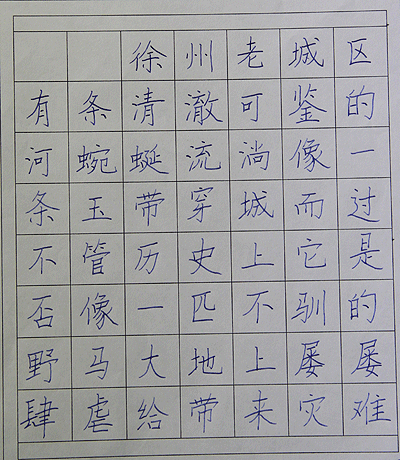 徐州老城区
有条清澈可鉴的
河蜿蜒流淌像一
条玉带穿城而过
不管历史上它是
否像一匹不驯的
野马大地上屡屡
肆虐给带来灾难